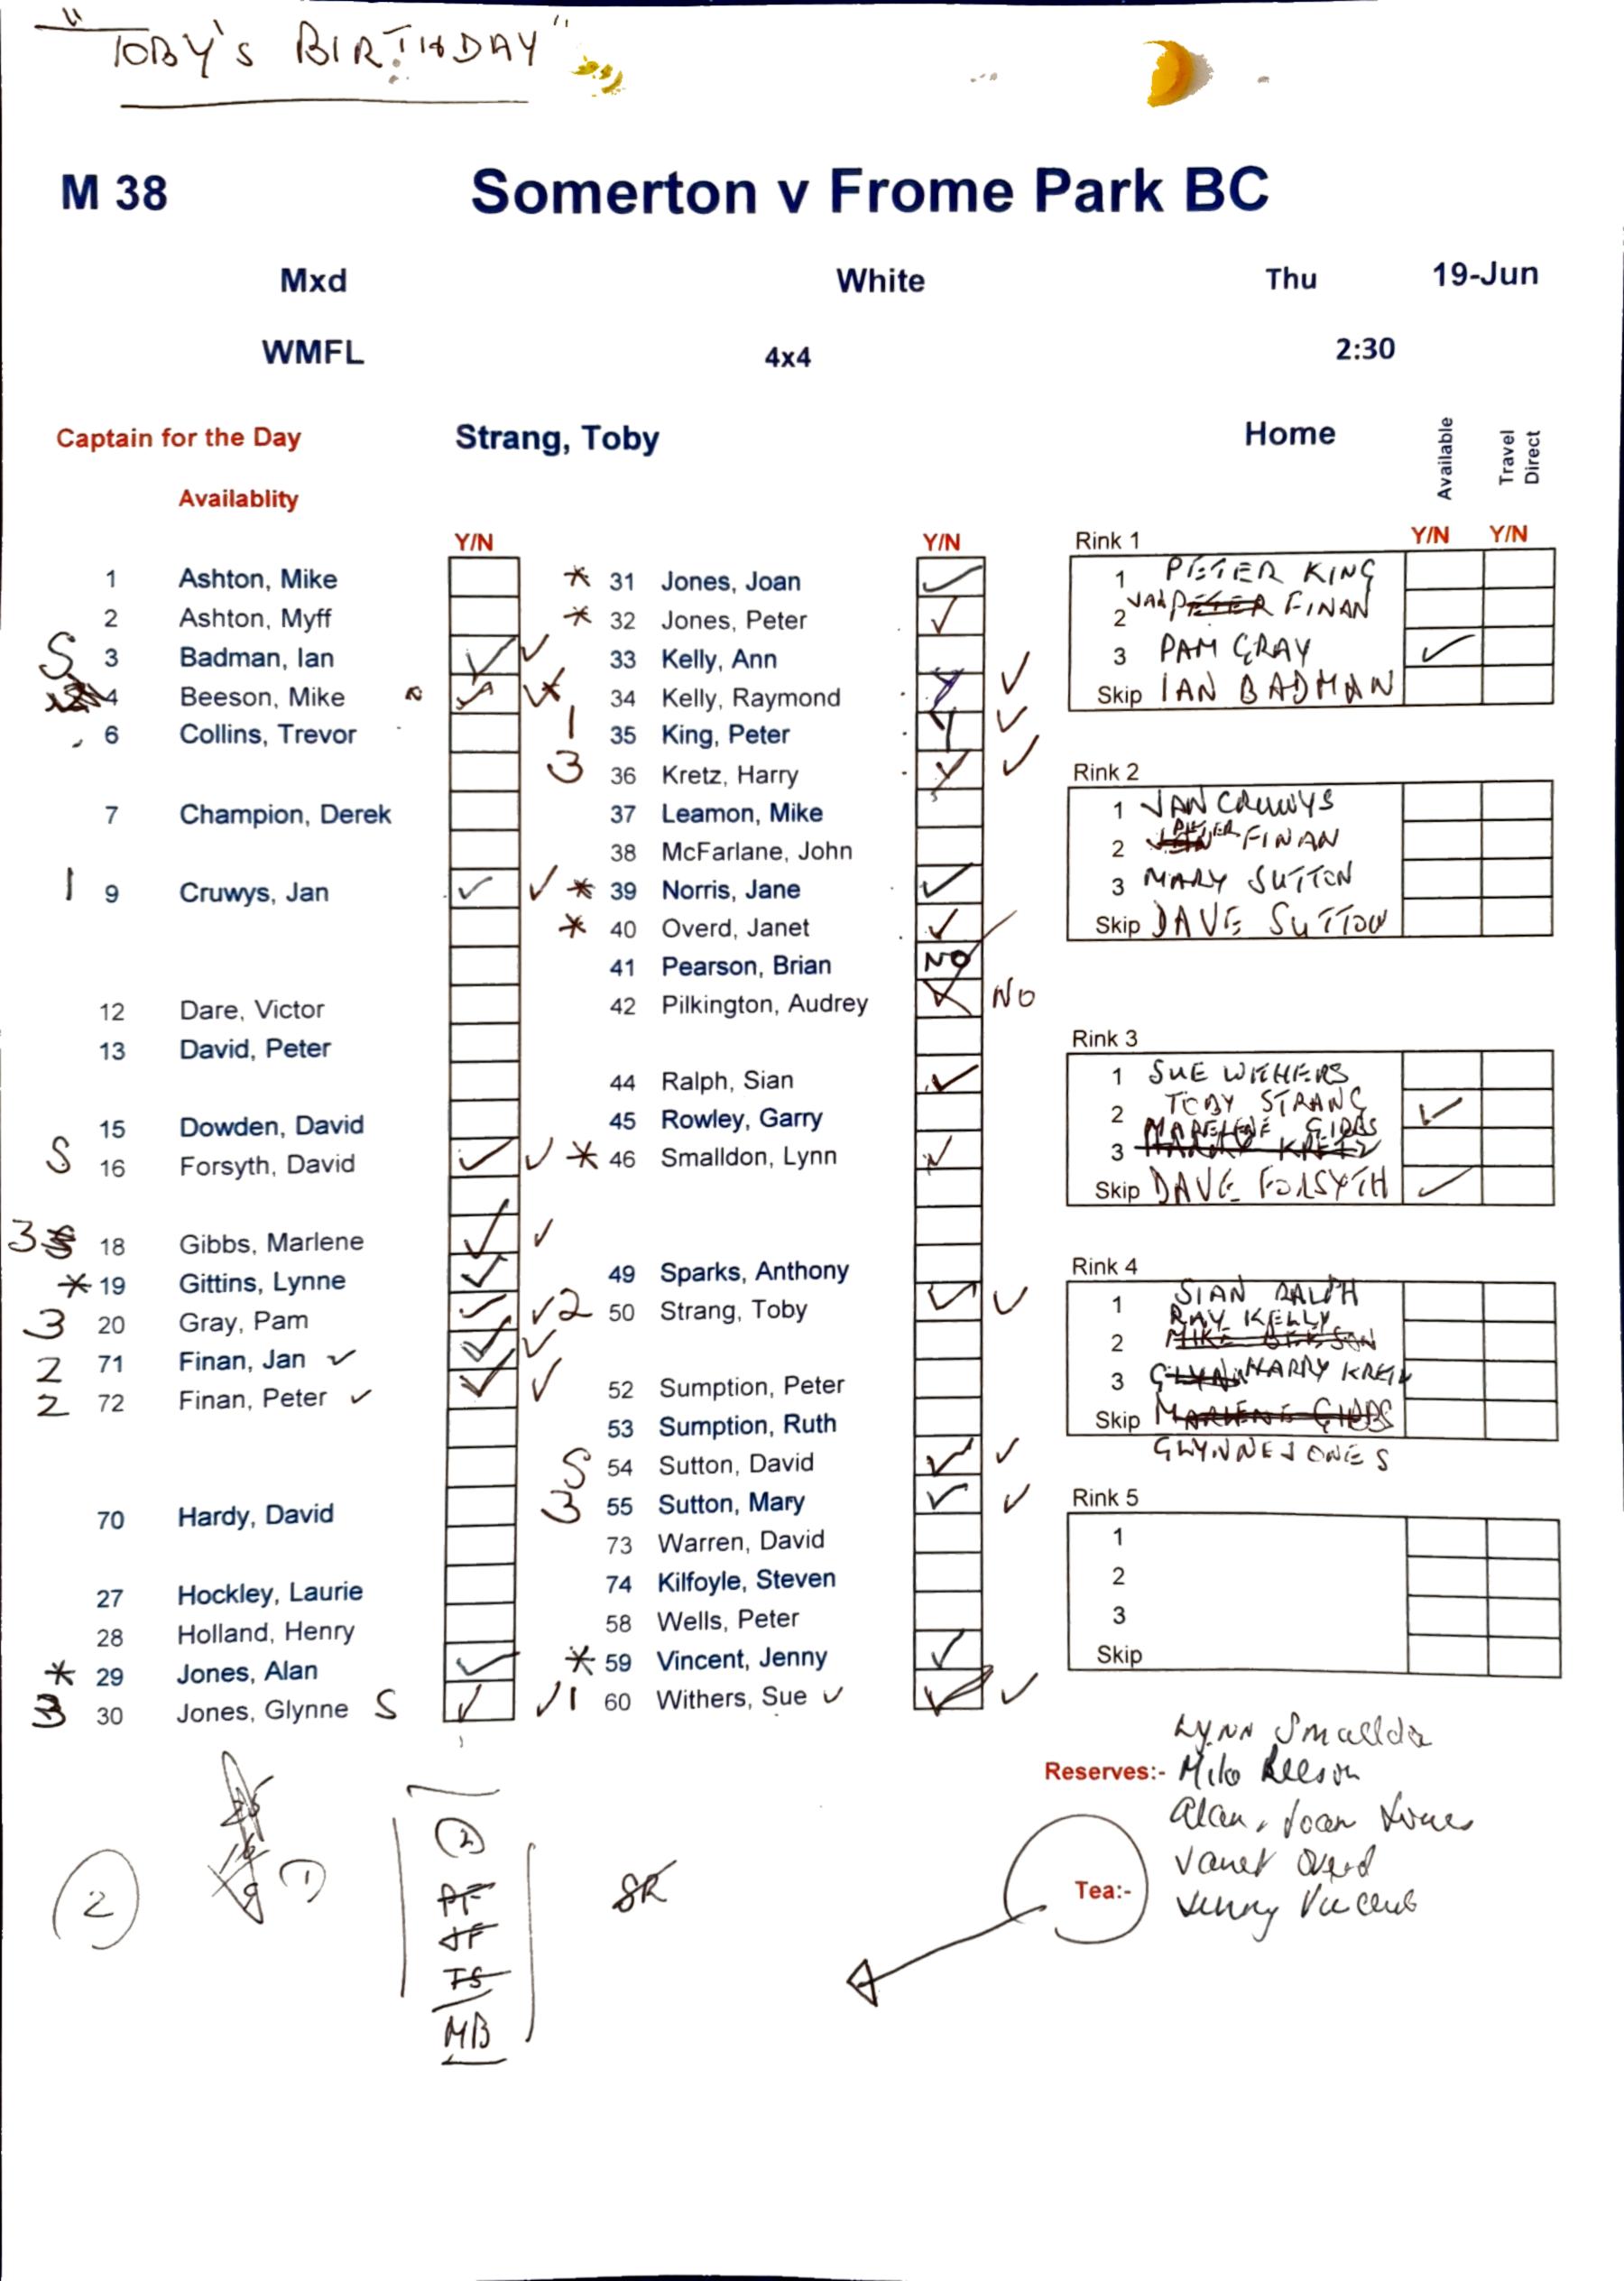 "TOBY'S BIRTHDAY"
M 38 Somerton v Frome Park BC
Mxd White Thu 19-Jun
WMFL 4x4 2:30
Captain for the Day Strang, Toby Home Available Travel Direct
Availablity
Y/N Y/N Y/N Y/N
1 Ashton, Mike
2 Ashton, Myff
S 3 Badman, Ian ✓ ✓
4 Beeson, Mike ✓ ✓
6 Collins, Trevor
7 Champion, Derek
1 9 Cruwys, Jan ✓ ✓
12 Dare, Victor
13 David, Peter
15 Dowden, David
S 16 Forsyth, David ✓ ✓
3 18 Gibbs, Marlene ✓ ✓
* 19 Gittins, Lynne ✓
3 20 Gray, Pam ✓ ✓
2 71 Finan, Jan ✓ ✓ ✓
2 72 Finan, Peter ✓ ✓ ✓
70 Hardy, David
27 Hockley, Laurie
28 Holland, Henry
* 29 Jones, Alan ✓
3 30 Jones, Glynne S ✓ ✓
* 31 Jones, Joan ✓
* 32 Jones, Peter ✓
33 Kelly, Ann
34 Kelly, Raymond Y ✓
1 35 King, Peter Y ✓
3 36 Kretz, Harry ✓ ✓
37 Leamon, Mike
38 McFarlane, John
* 39 Norris, Jane ✓
* 40 Overd, Janet ✓
41 Pearson, Brian NO
42 Pilkington, Audrey X NO
44 Ralph, Sian ✓
45 Rowley, Garry
* 46 Smalldon, Lynn ✓
49 Sparks, Anthony
2 50 Strang, Toby ✓ ✓
52 Sumption, Peter
53 Sumption, Ruth
S 54 Sutton, David ✓ ✓
3 55 Sutton, Mary ✓ ✓
73 Warren, David
74 Kilfoyle, Steven
58 Wells, Peter
* 59 Vincent, Jenny ✓
1 60 Withers, Sue ✓ ✓ ✓
Rink 1
1 PETER KING
2 JAN PETER FINAN
3 PAM GRAY ✓
Skip IAN BADMAN
Rink 2
1 JAN CRUWYS
2 JAN PETER FINAN
3 MARY SUTTON
Skip DAVE SUTTON
Rink 3
1 SUE WITHERS
2 TOBY STRANG ✓
MARELENE GIBBS
3 HARRY KRETZ
Skip DAVE FORSYTH ✓
Rink 4
1 SIAN RALPH
RAY KELLY
2 MIKE BEESON
3 GLYN HARRY KRETZ
Skip MARLENE GIBBS
GLYNNE JONES
Rink 5
1
2
3
Skip
Lynn Smalldon
Reserves:- Mike Beeson
Alan, Joan Jones
Janet Overd
Tea:- Jenny Vincent
2
1
2
PF
JF
TS
MB
SR